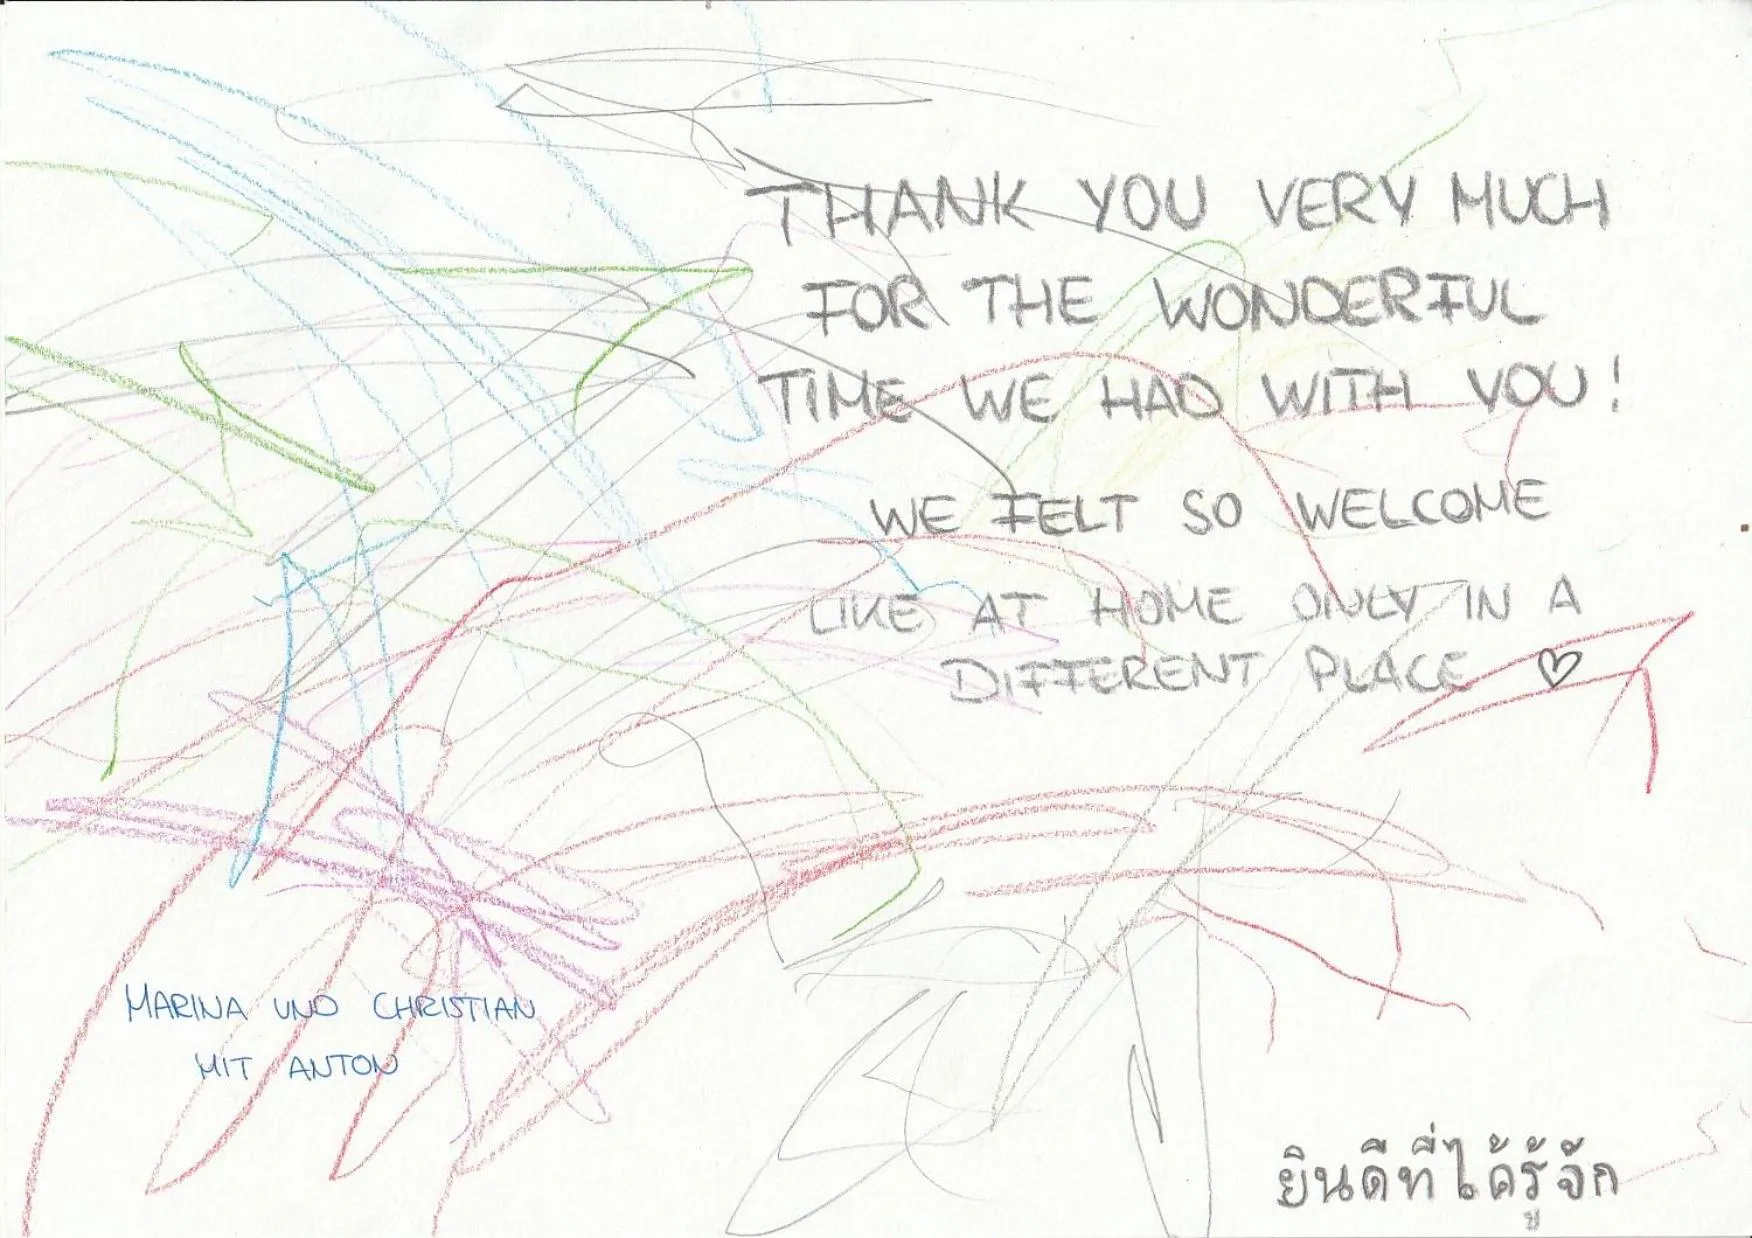 THANK YOU VERY MUCH
FOR THE WONDERFUL
TIME WE HAD WITH YOU!
WE FELT SO WELCOME
LIKE AT HOME ONLY IN A
DIFFERENT PLACE ♡
MARINA UND CHRISTIAN
MIT ANTON
ยินดีที่ได้รู้จัก